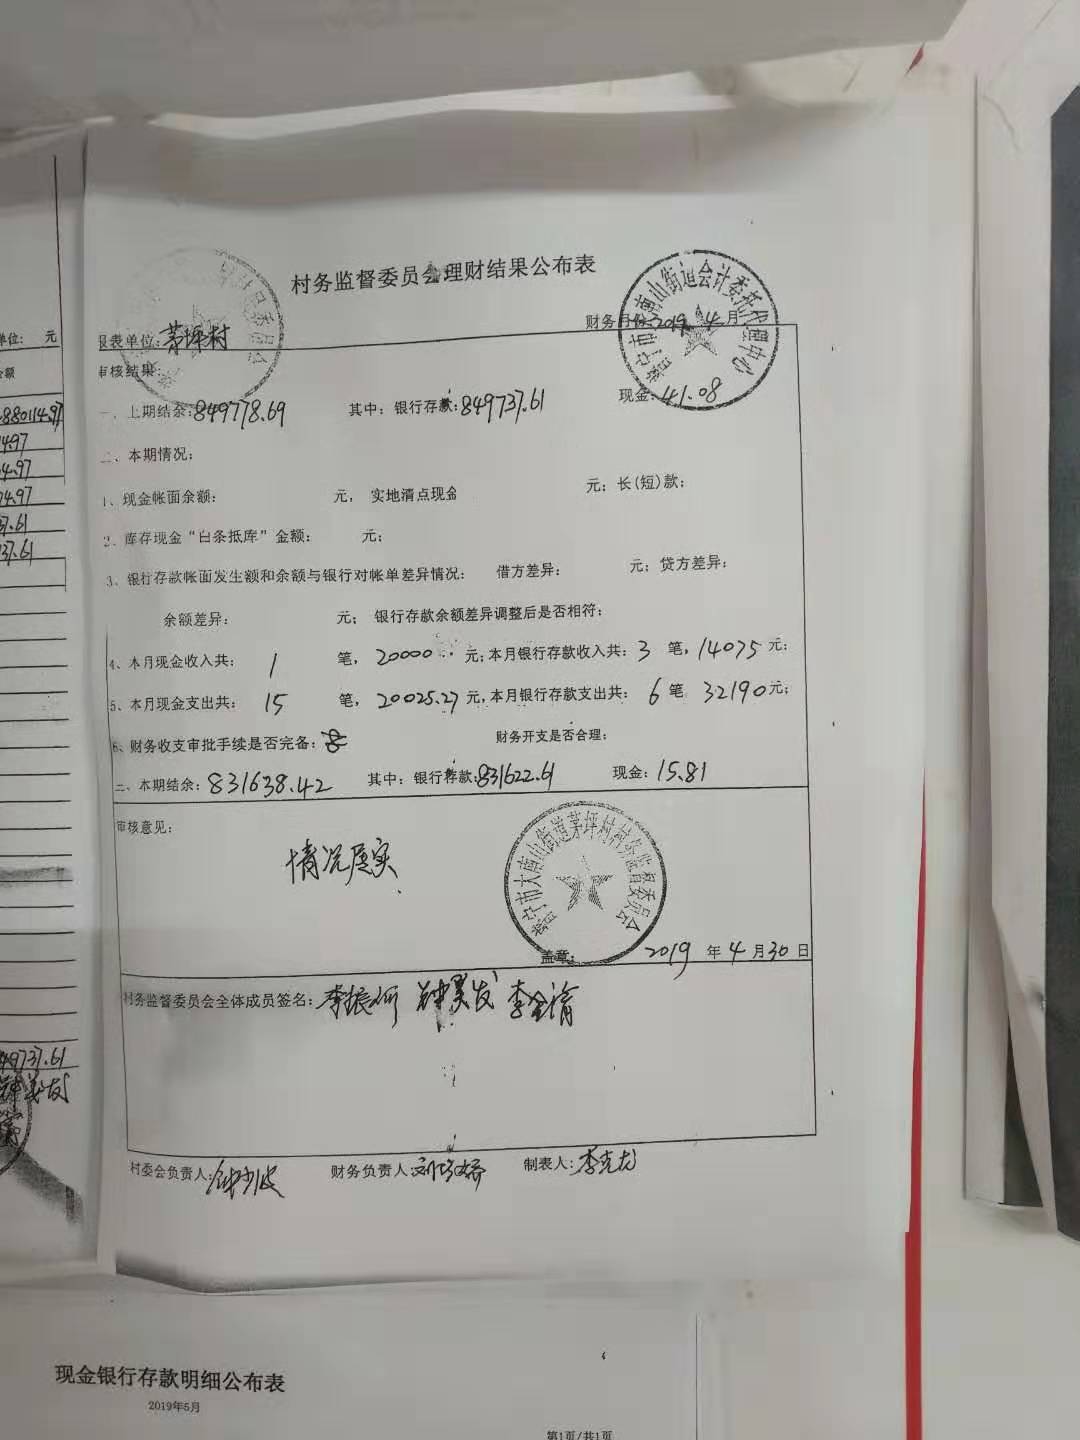 村务监督委员会理财结果公布表
报表单位:茅坪村
财务月份:2019 4月
审核结果:
一、上期结余:849778.69 其中:银行存款:849737.61 现金:41.08
二、本期情况:
1、现金帐面余额: 元, 实地清点现金 元;长(短)款:
2、库存现金“白条抵库”金额: 元;
3、银行存款帐面发生额和余额与银行对帐单差异情况: 借方差异: 元;贷方差异:
余额差异: 元; 银行存款余额差异调整后是否相符:
4、本月现金收入共: 1 笔, 20000 元;本月银行存款收入共:3 笔,14075元;
5、本月现金支出共: 15 笔, 20025.27元,本月银行存款支出共: 6笔 32190元;
6、财务收支审批手续是否完备:是 财务开支是否合理:
二、本期结余:831638.42 其中:银行存款:831622.61 现金:15.81
审核意见:
情况属实
普宁市大南山街道茅坪村村务监督委员会
普宁市大南山街道会计委托代理中心
盖章: 2019年4月30日
村务监督委员会全体成员签名:李振 钟美发 李
村委会负责人: 财务负责人:刘 制表人:李克龙
单位: 元
金额
880114.97
74.97
737.61
849737.61
钟美发
现金银行存款明细公布表
2019年5月
第1页/共1页